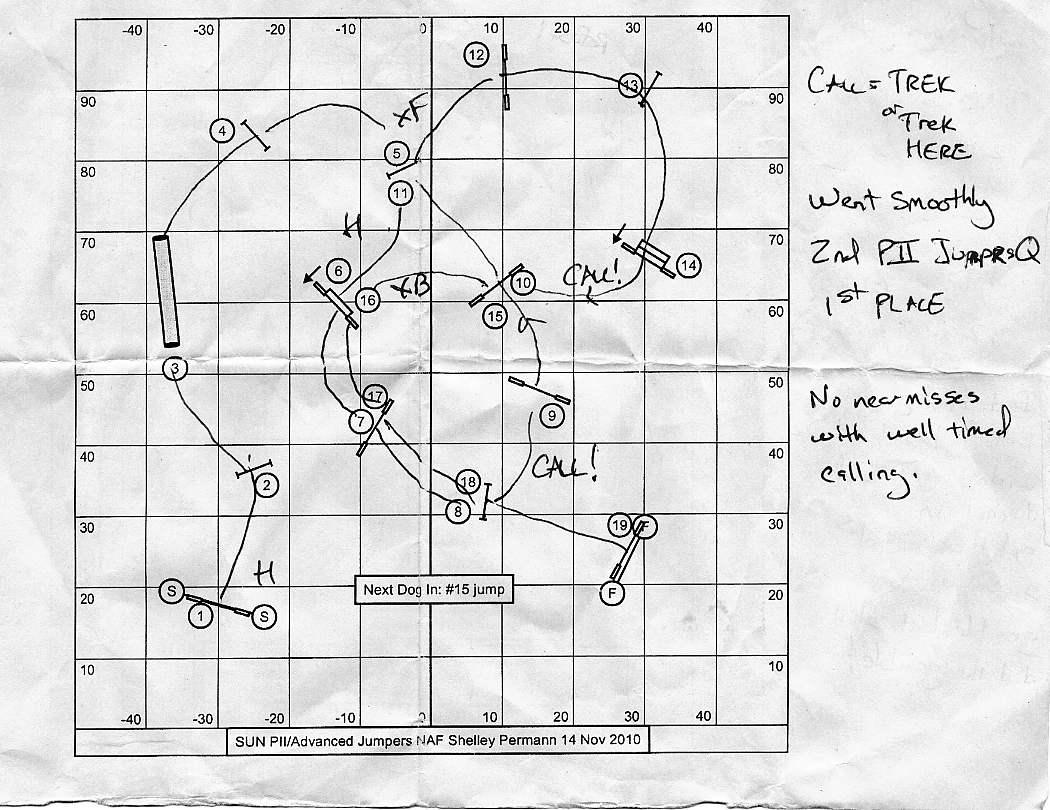 -40 -30 -20 -10 0 10 20 30 40
12
CALL = TREK
or Trek
HERE
90 13 90
XF
4
5
80 80
11
Went Smoothly
H
70 70
2nd PII JUMPRSQ
14
6 CALL!
XB 10
16
1st PLACE
60 15 60
50 3 50
No near misses
17
9
7
with well timed
40 40
CALL!
calling.
18
2
8
30 19 F 30
H
S Next Dog In: #15 jump F
20 20
1 S
10 10
-40 -30 -20 -10 0 10 20 30 40
SUN PII/Advanced Jumpers NAF Shelley Permann 14 Nov 2010